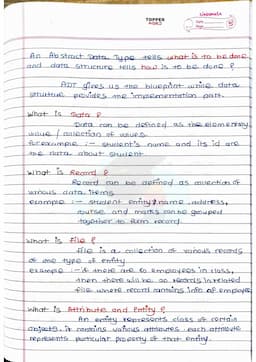 TOPPER
WORLD
An Abstract Data Type tells what is to be done
and data structure tells how is to be done ?
ADT gives us the blueprint while data
structure provides the implementation part.
What is Data ?
Data can be defined as the elementary
value / collection of values.
for example :- student's name and its id are
the data about student
What is Record ?
Record can be defined as collection of
various data items
example :- student entity, name, address,
course and marks can be grouped
together to form record.
What is File ?
File is a collection of various records
of one type of entity
example :- if there are 60 employees in class,
then there will be 60 records in related
file where record contains info of employee
What is Attribute and Entity ?
An entity represents class of certain
objects. it contains various attributes. each attribute
represents particular property of that entity.